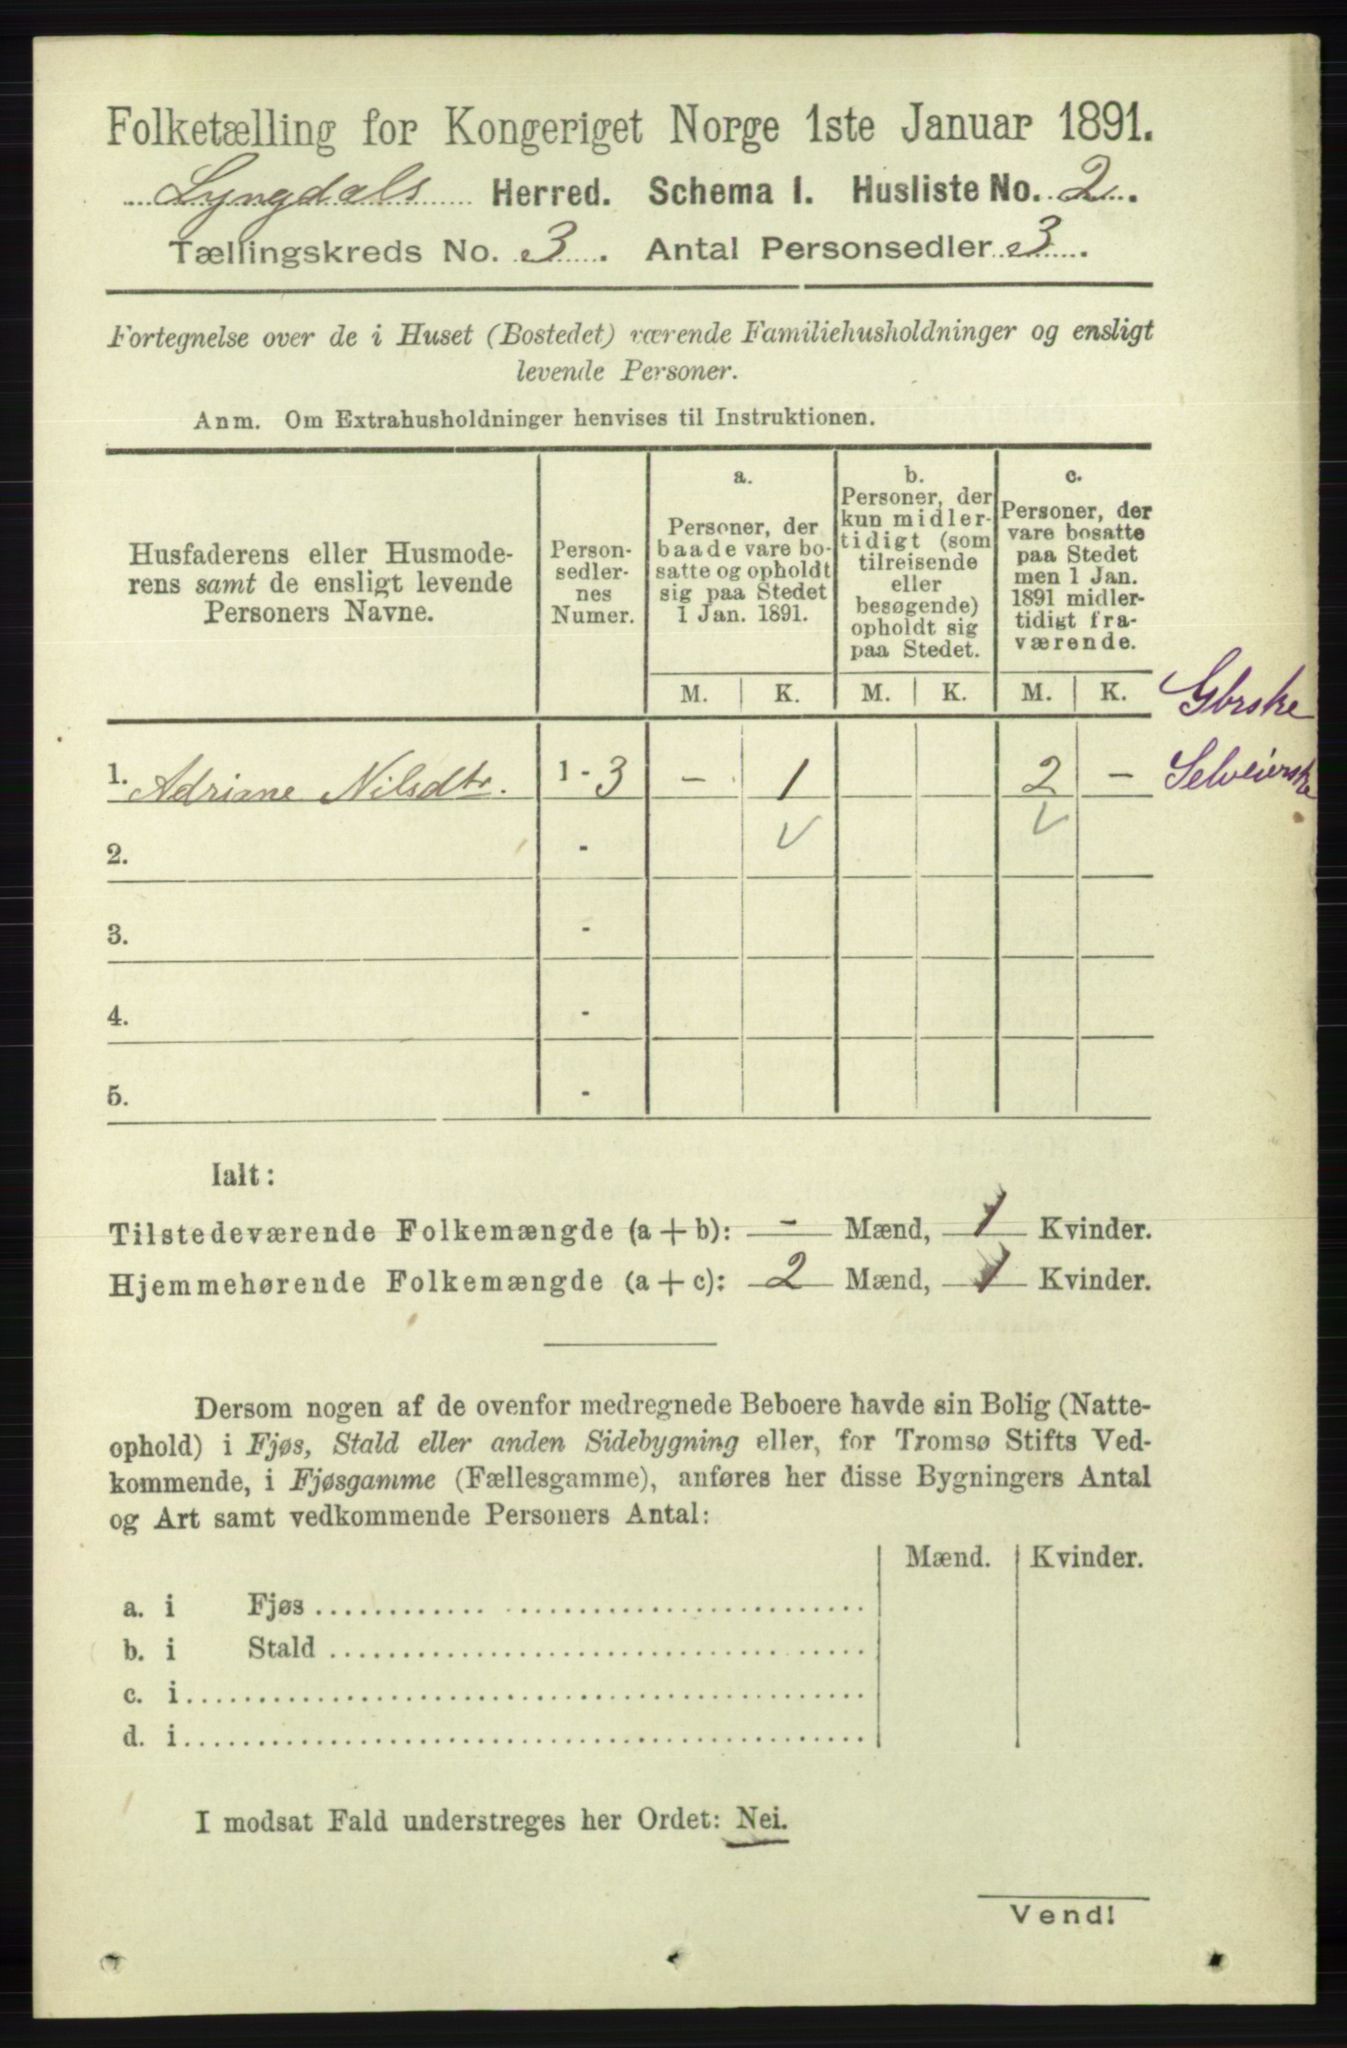 Folketælling for Kongeriget Norge 1ste Januar 1891.
Lyngdals Herred. Schema I. Husliste No. 2.
Tællingskreds No. 3. Antal Personsedler 3.
Fortegnelse over de i Huset (Bostedet) værende Familiehusholdninger og ensligt
levende Personer.
Anm. Om Extrahusholdninger henvises til Instruktionen.
Husfaderens eller Husmode-
rens samt de ensligt levende
Personers Navne.
Person-
sedler-
nes
Numer.
a.
Personer, der
baade vare bo-
satte og opholdt
sig paa Stedet
1 Jan. 1891.
b.
Personer, der
kun midler-
tidigt (som
tilreisende
eller
besøgende)
opholdt sig
paa Stedet.
c.
Personer, der
vare bosatte
paa Stedet
men 1 Jan.
1891 midler-
tidigt fra-
værende.
M. K. M. K. M. K.
Gbrske
1. Adriane Nilsdtr. 1 - 3 - 1 2 - Selveierske
2. - ✓ ✓
3. -
4. -
5. -
Ialt:
Tilstedeværende Folkemængde (a + b): - Mænd, 1 Kvinder.
Hjemmehørende Folkemængde (a + c): 2 Mænd, 1 Kvinder.
Dersom nogen af de ovenfor medregnede Beboere havde sin Bolig (Natte-
ophold) i Fjøs, Stald eller anden Sidebygning eller, for Tromsø Stifts Ved-
kommende, i Fjøsgamme (Fællesgamme), anføres her disse Bygningers Antal
og Art samt vedkommende Personers Antal:
Mænd. Kvinder.
a. i Fjøs
b. i Stald
c. i
d. i
I modsat Fald understreges her Ordet: Nei.
Vend!